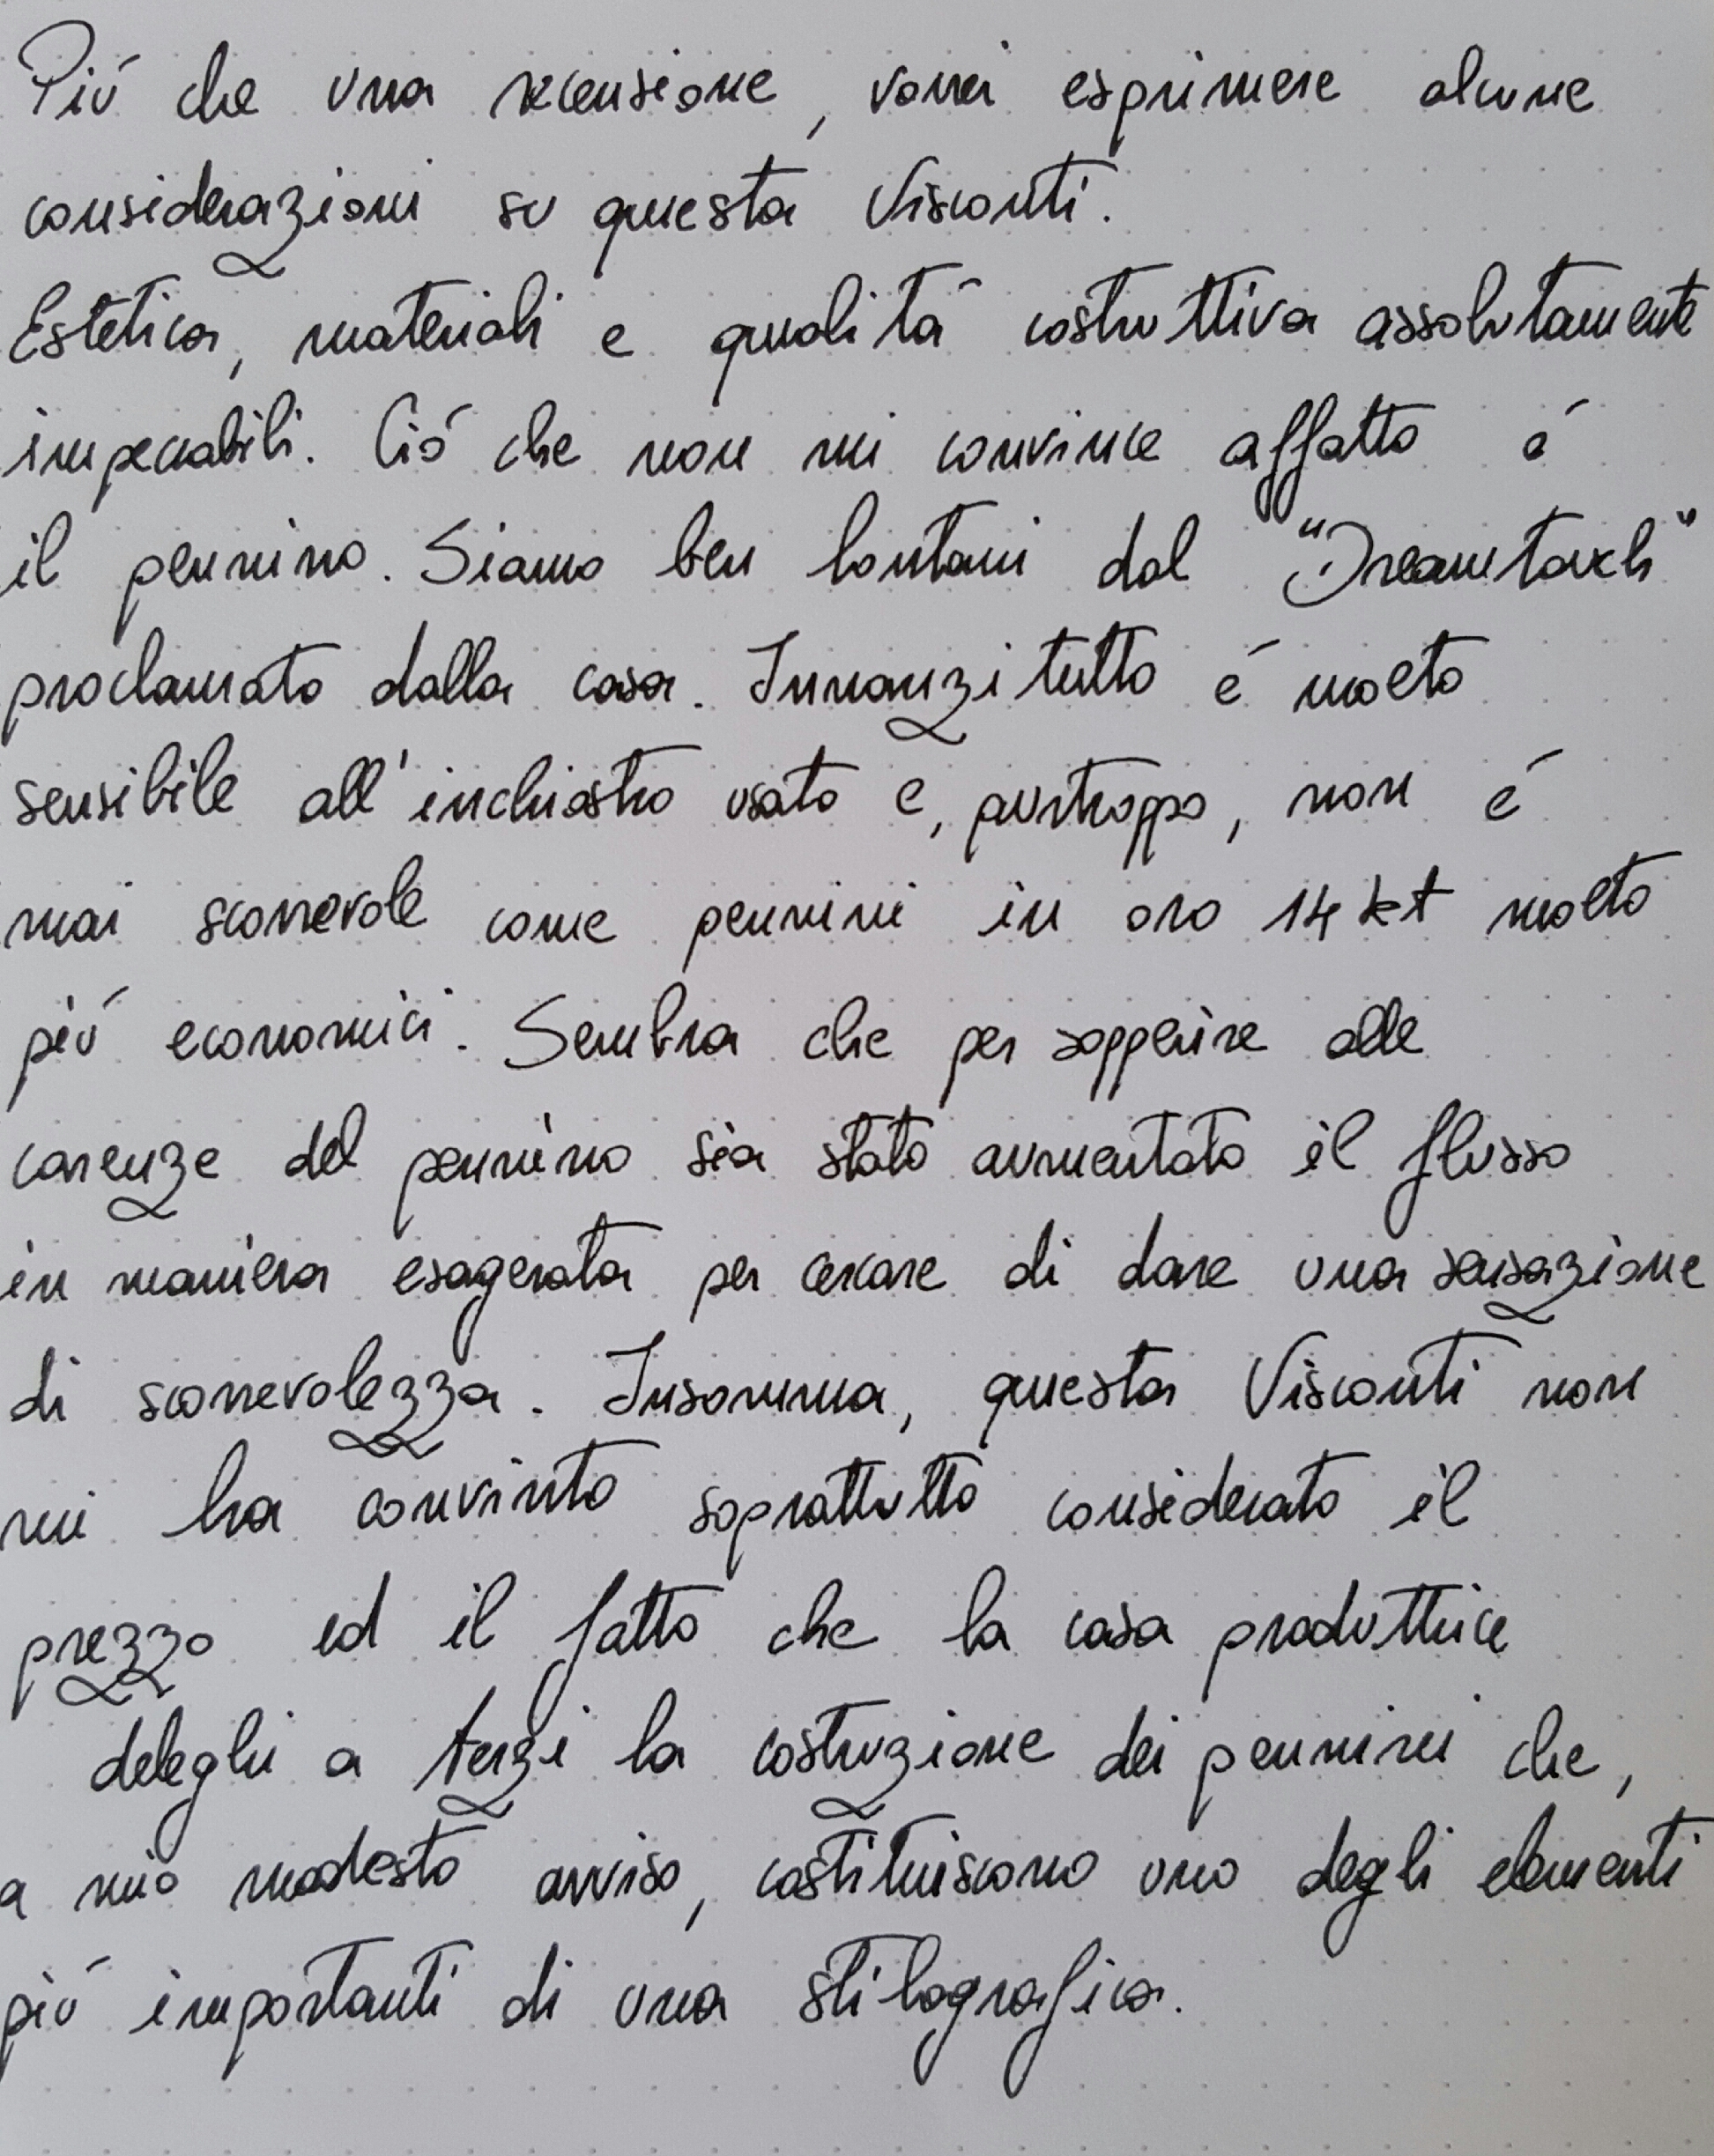 Più che una recensione, vorrei esprimere alcune
considerazioni su questa Visconti.
Estetica, materiali e qualità costruttiva assolutamente
impeccabili. Ciò che non mi convince affatto è
il pennino. Siamo ben lontani dal "Dreamtouch"
proclamato dalla casa. Innanzitutto è molto
sensibile all'inchiostro usato e, purtroppo, non è
mai scorrevole come pennini in oro 14 kt molto
più economici. Sembra che per sopperire alle
carenze del pennino sia stato aumentato il flusso
in maniera esagerata per cercare di dare una sensazione
di scorrevolezza. Insomma, questa Visconti non
mi ha convinto soprattutto considerato il
prezzo ed il fatto che la casa produttrice
deleghi a terzi la costruzione dei pennini che,
a mio modesto avviso, costituiscono uno degli elementi
più importanti di una stilografica.